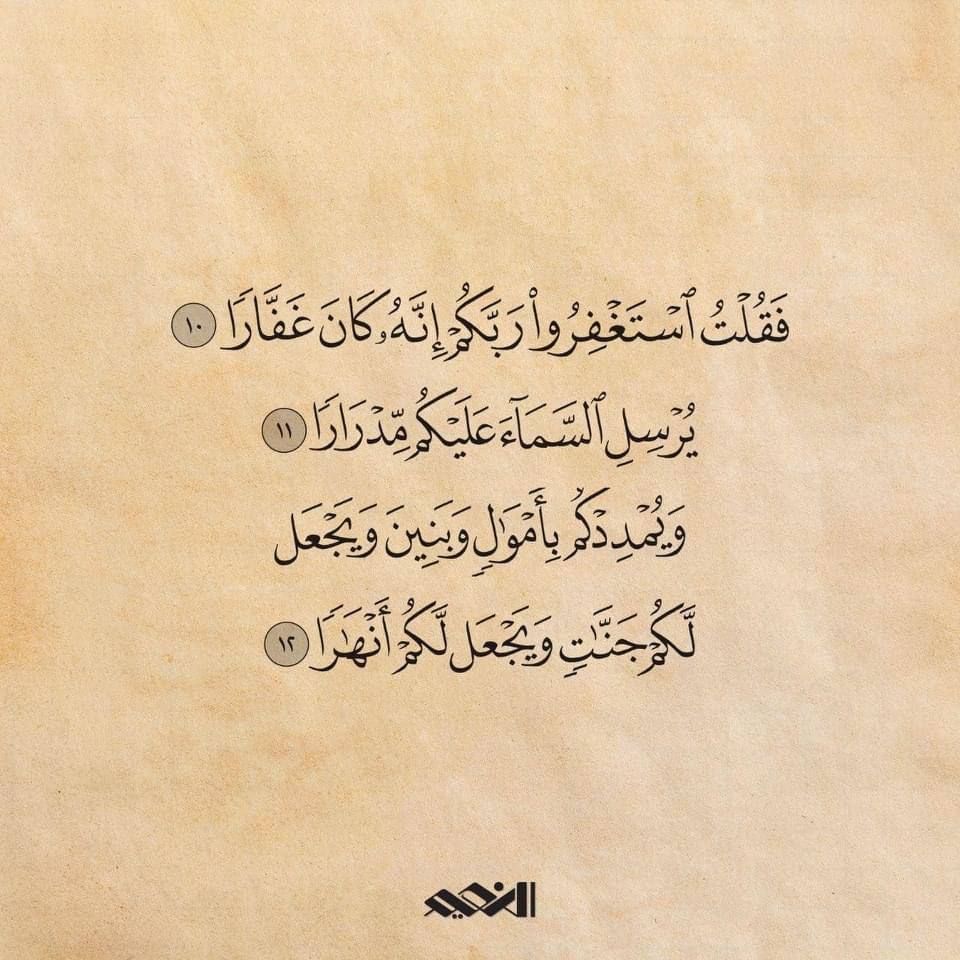 فَقُلْتُ ٱسْتَغْفِرُوا۟ رَبَّكُمْ إِنَّهُۥ كَانَ غَفَّارًا ١٠
يُرْسِلِ ٱلسَّمَآءَ عَلَيْكُم مِّدْرَارًا ١١
وَيُمْدِدْكُم بِأَمْوَٰلٍ وَبَنِينَ وَيَجْعَل
لَّكُمْ جَنَّٰتٍ وَيَجْعَل لَّكُمْ أَنْهَٰرًا ١٢